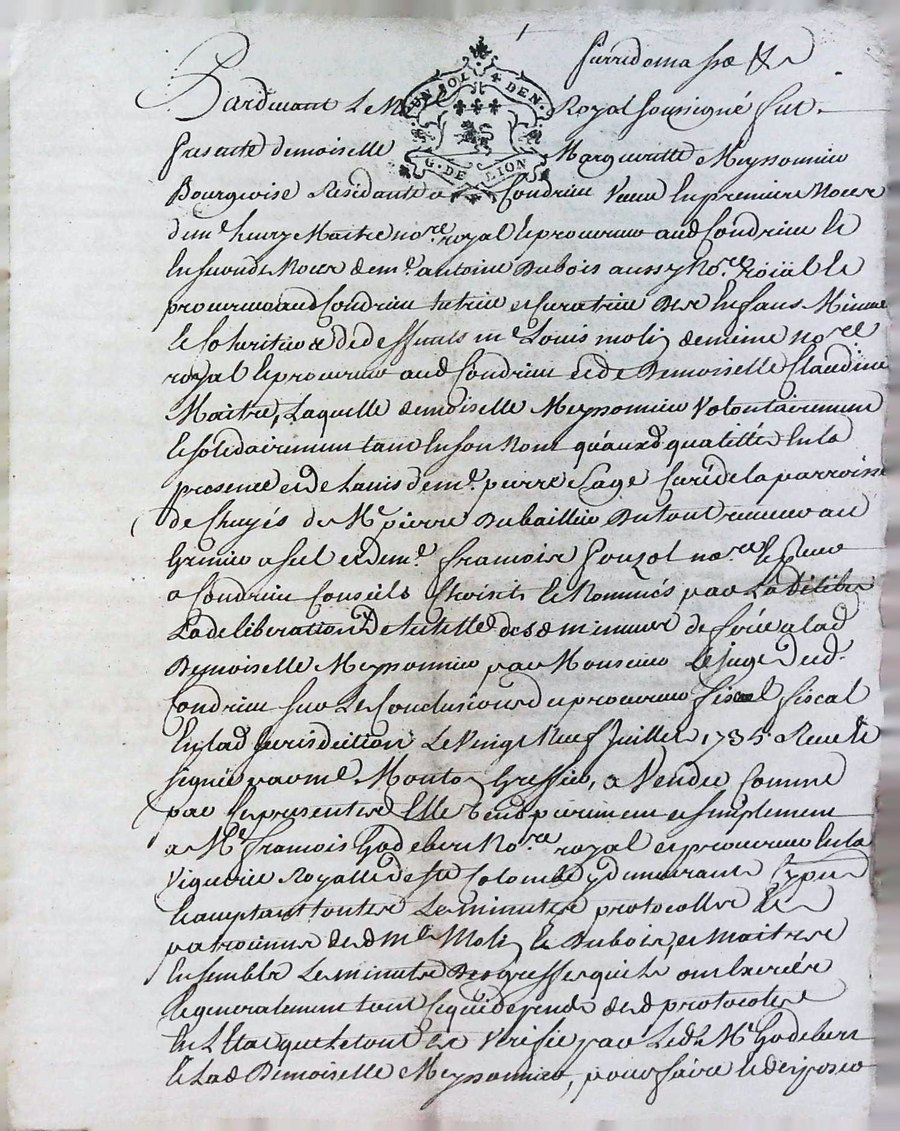 UN SOL 4 DEN.
G. DE LION
Pardevant Le Royal soussigné fut
presente demoiselle Marguerite Meyssonnier
Bourgeoise Residante a Condrieu Veuve en premiere Noces
de me henry Maitre nore royal & procureur aud Condrieu &
En seconde Noces de me antoine Dubois aussy Nore Roial &
procureur aud Condrieu tutrice et curatrice de ses Enfans Mineurs
& Coheritiere de deffunts me Louis moli de meme nore
royal & procureur aud Condrieu et de Demoiselle Claudine
Maitre, Laquelle demoiselle Meyssonnier Volontairement
& solidairement tant En son Nom qu'auxd qualittés En la
presence et de Lavis de me pierre Sage Curé de la parroisse
de Chuyés de Mr pierre Dubaillier Du tout receveur au
Grenier a sel et de me francois Gouzol nore &
a Condrieu Conseils Choisis & Nommés par La Delibe
La deliberation de tutelle desd mineurs deferée a lad
Demoiselle Meyssonnier par Monsieur Le juge dud
Condrieu sur Les Conclusions du procureur fiscal fiscal
En lad Jurisdiction Le Vingt Neuf Juillet 1735 Receue &
signée par me Monto Greffier, a Vendu Comme
par Les presentes Elle Vend purement et simplement
a Me francois Godebert Nore royal et procureur En la
Viguerie Royalle de Ste Colombe y demeurant
& acceptant toutes Les minutes protocolles &
desd mes Moli & Dubois, et Maitre
Ensemble Les minutes Des greffes quils ont
& generalement tout ce qui depend desd protocoles
En L'Etat que le tout Est Verifié par Led Me Godebert
& Lad Demoiselle Meyssonnier, pour faire &